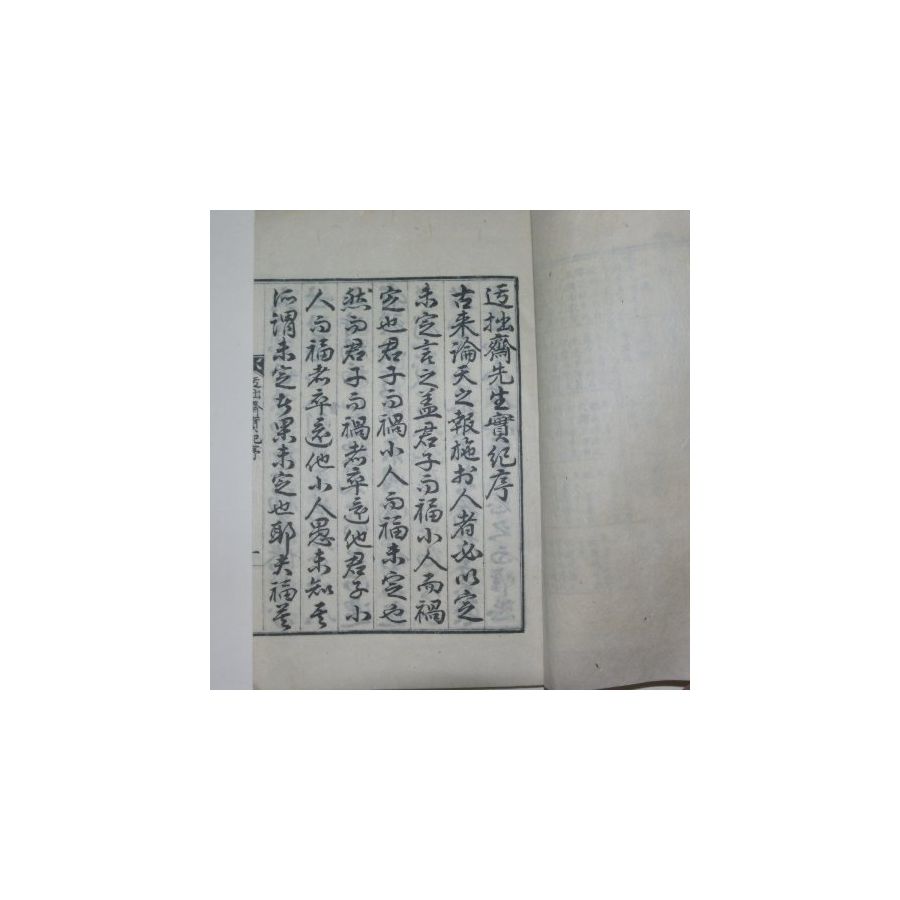 迃拙齋先生實紀序
古来論天之報施於人者必以定
未定言之盖君子而福小人而禍
定也君子而禍小人而福未定也
然而君子而禍者卒還他君子小
人而福者卒還他小人愚未知其
所謂未定者果未定也耶夫福善
迃拙齋實紀序
一